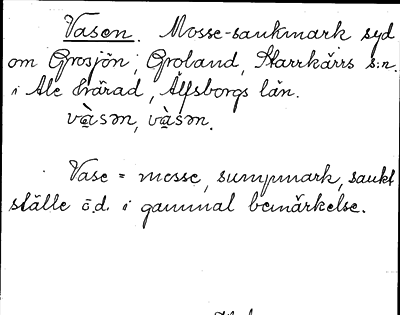 Vasen. Mosse-sankmark syd
om Grosjön, Groland, Starrkärrs s:n.
i Ale härad, Älfsborgs län.
Vase = mosse, sumpmark, sankt
ställe o.d. i gammal bemärkelse.